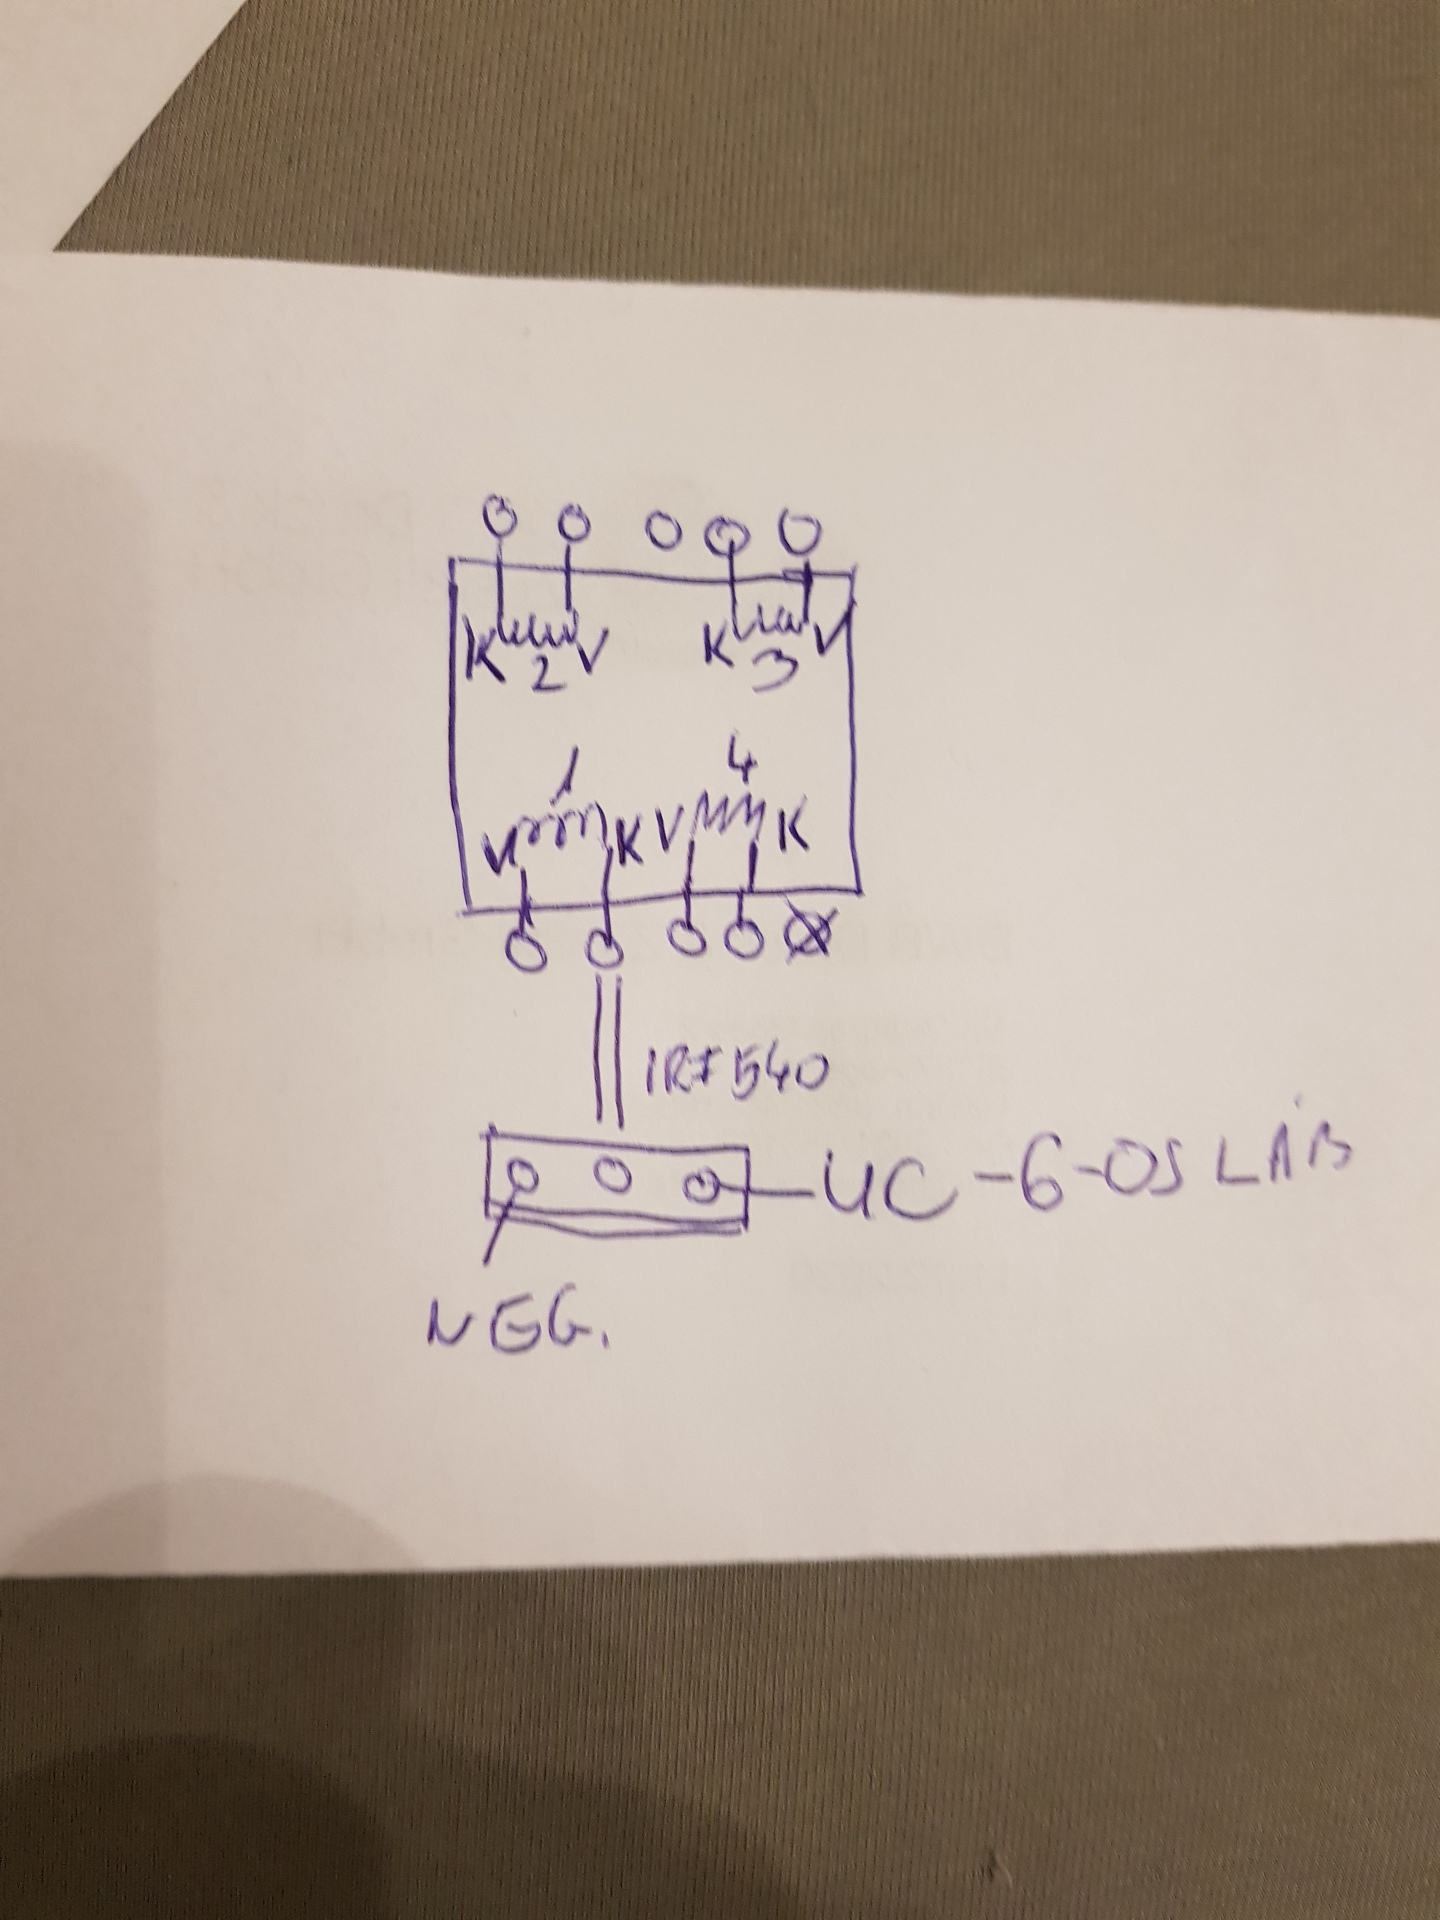 K 2 V K 3 V
1 4
V K V K
IRF540
UC-6-OS LÁB
NEG.